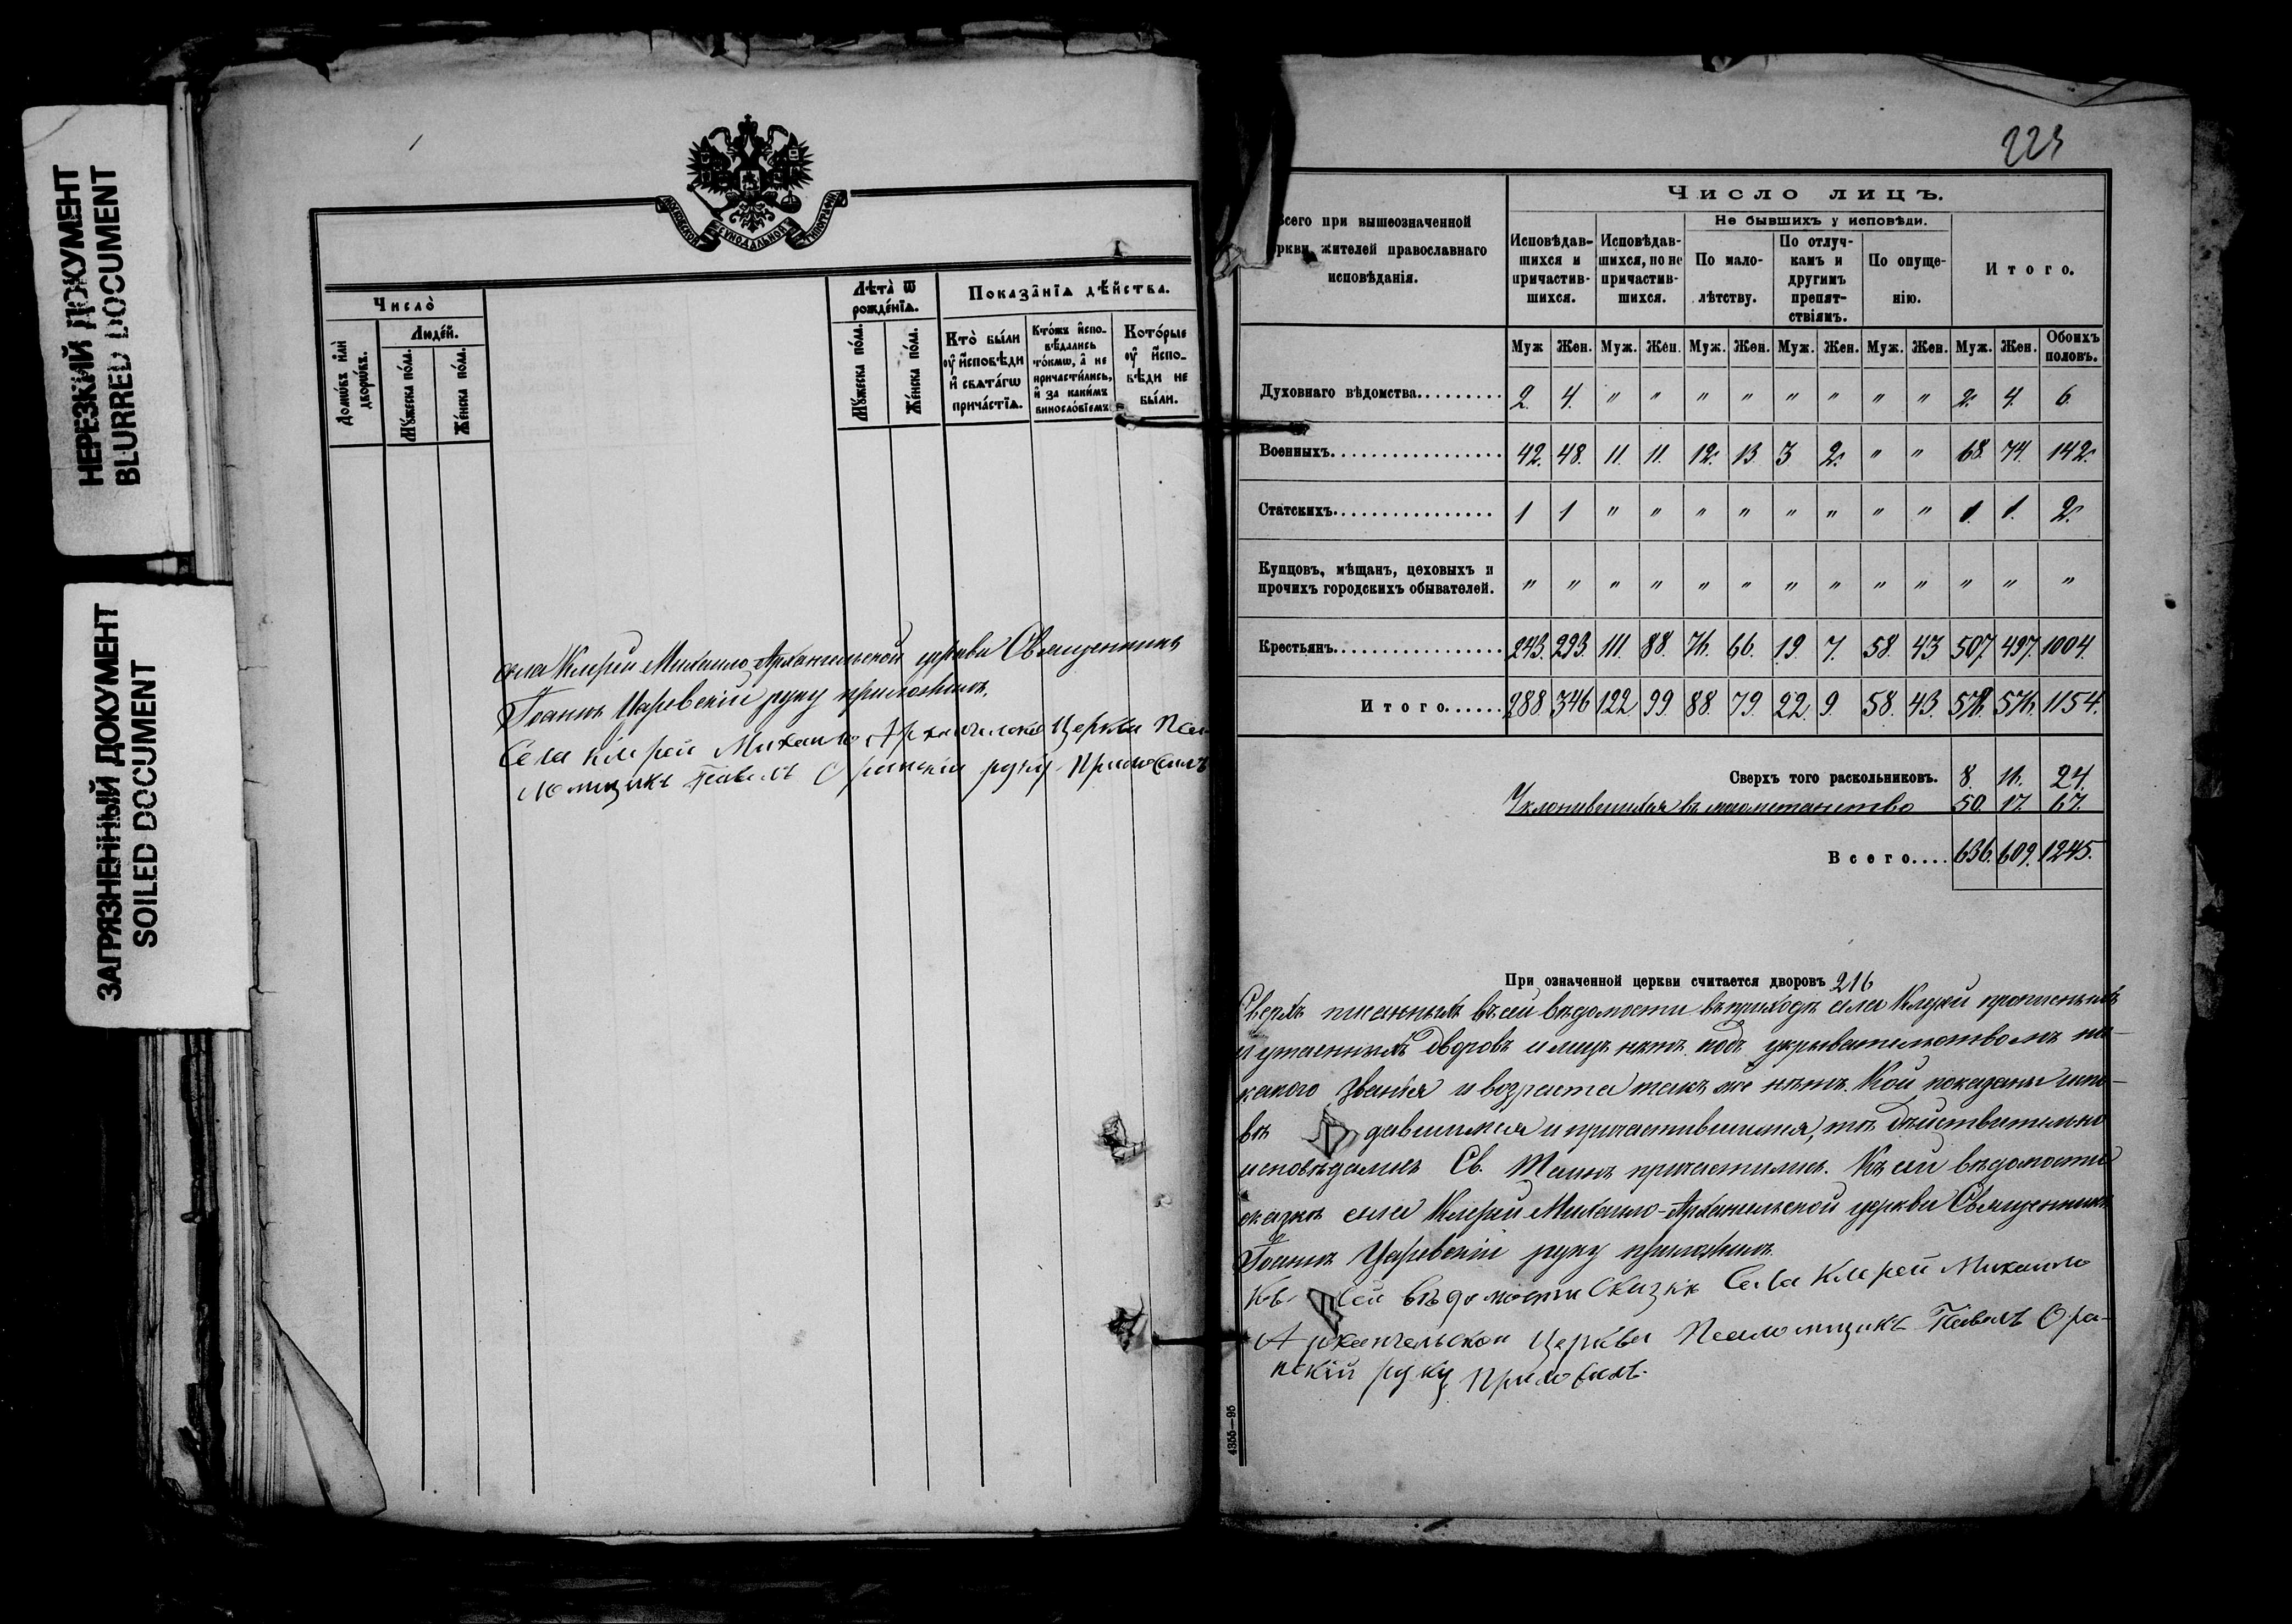 НЕРЕЗКИЙ ДОКУМЕНТ
BLURRED DOCUMENT
ЗАГРЯЗНЕННЫЙ ДОКУМЕНТ
SOILED DOCUMENT
МОСКОВСКОЙ СѴНОДАЛЬНОЙ ТИПОГРАФІИ
Число̀
Людéй.
Домѡвъ и҆лѝ дворѡвъ.
Мꙋжеска по́ла.
Же́нска по́ла.
Лѣта̀ ѿ рожде́нїѧ.
Мꙋжеска по́ла.
Же́нска по́ла.
Показа̑нїѧ дѣ́йства.
Кто̀ бы́ли ᲂу҆ и҆сповѣди и҆ свѧта́гѡ прича́стїѧ.
Кто́жъ и҆спо-
вѣдались
то́кмѡ, а҆ не
причасти́лись,
и҆ за каки́мъ
винослѡ́вїемъ
Кото́рые ᲂу҆ и҆спо-
вѣди не бы́ли.
села Клерей Михаило-Архангельской церкви Священникъ
Іоаннъ Царевскій руку приложилъ.
Села Клерей Михаило Архангельской Церкви Пса-
ломщикъ Павелъ Оранскій руку приложилъ
223
Всего при вышеозначенной
церкви жителей православнаго
исповѣданія.
Число лицъ.
Исповѣдав-
шихся и
причастив-
шихся.
Исповѣдав-
шихся, но не
причастив-
шихся.
Не бывшихъ у исповѣди.
По мало-
лѣтству.
По отлуч-
камъ и
другимъ
препят-
ствіямъ.
По опуще-
нію.
Итого.
Муж Жен. Муж. Жен. Муж. Жен. Муж. Жен. Муж. Жен. Муж. Жен. Обоихъ половъ.
Духовнаго вѣдомства......... 2. 4. " " " " " " " " 2. 4. 6.
Военныхъ................. 42. 48. 11. 11. 12. 13 3 2. " " 68. 74. 142.
Статскихъ................ 1 1 " " " " " " " " 1. 1. 2.
Купцовъ, мѣщанъ, цеховыхъ и
прочихъ городскихъ обывателей. " " " " " " " " " " " " "
Крестьянъ................. 243. 293. 111. 88. 76. 66. 19. 7. 58. 43 507. 497. 1004.
Итого...... 288. 346 122 99. 88. 79. 22. 9. 58. 43. 578. 576. 1154.
Сверхъ того раскольниковъ. 8. 16. 24.
Уклонившихся въ магометанство 50. 17. 67.
Всего.... 636. 609. 1245.
При означенной церкви считается дворовъ 216
Сверхъ писанныхъ въ сей вѣдомости въ приходѣ села Клерей прописныхъ
и утаенныхъ дворовъ и лицъ нѣтъ, подъ укрывательствомъ ни-
какого званія и возраста такъ же нѣтъ. Кои показаны испо-
вѣ давшимися и причастившимися, тѣ дѣйствительно
исповѣдались Св. Таинъ причастились. Къ сей вѣдомости
сказкѣ села Клерей Михаило-Архангельской церкви Священникъ
Іоаннъ Царевскій руку приложилъ.
Къ сей вѣдомости сказкѣ Села Клерей Михаило
Архангельской Церкви Псаломщикъ Павелъ Ора-
нскій руку Приложилъ.
4355—95